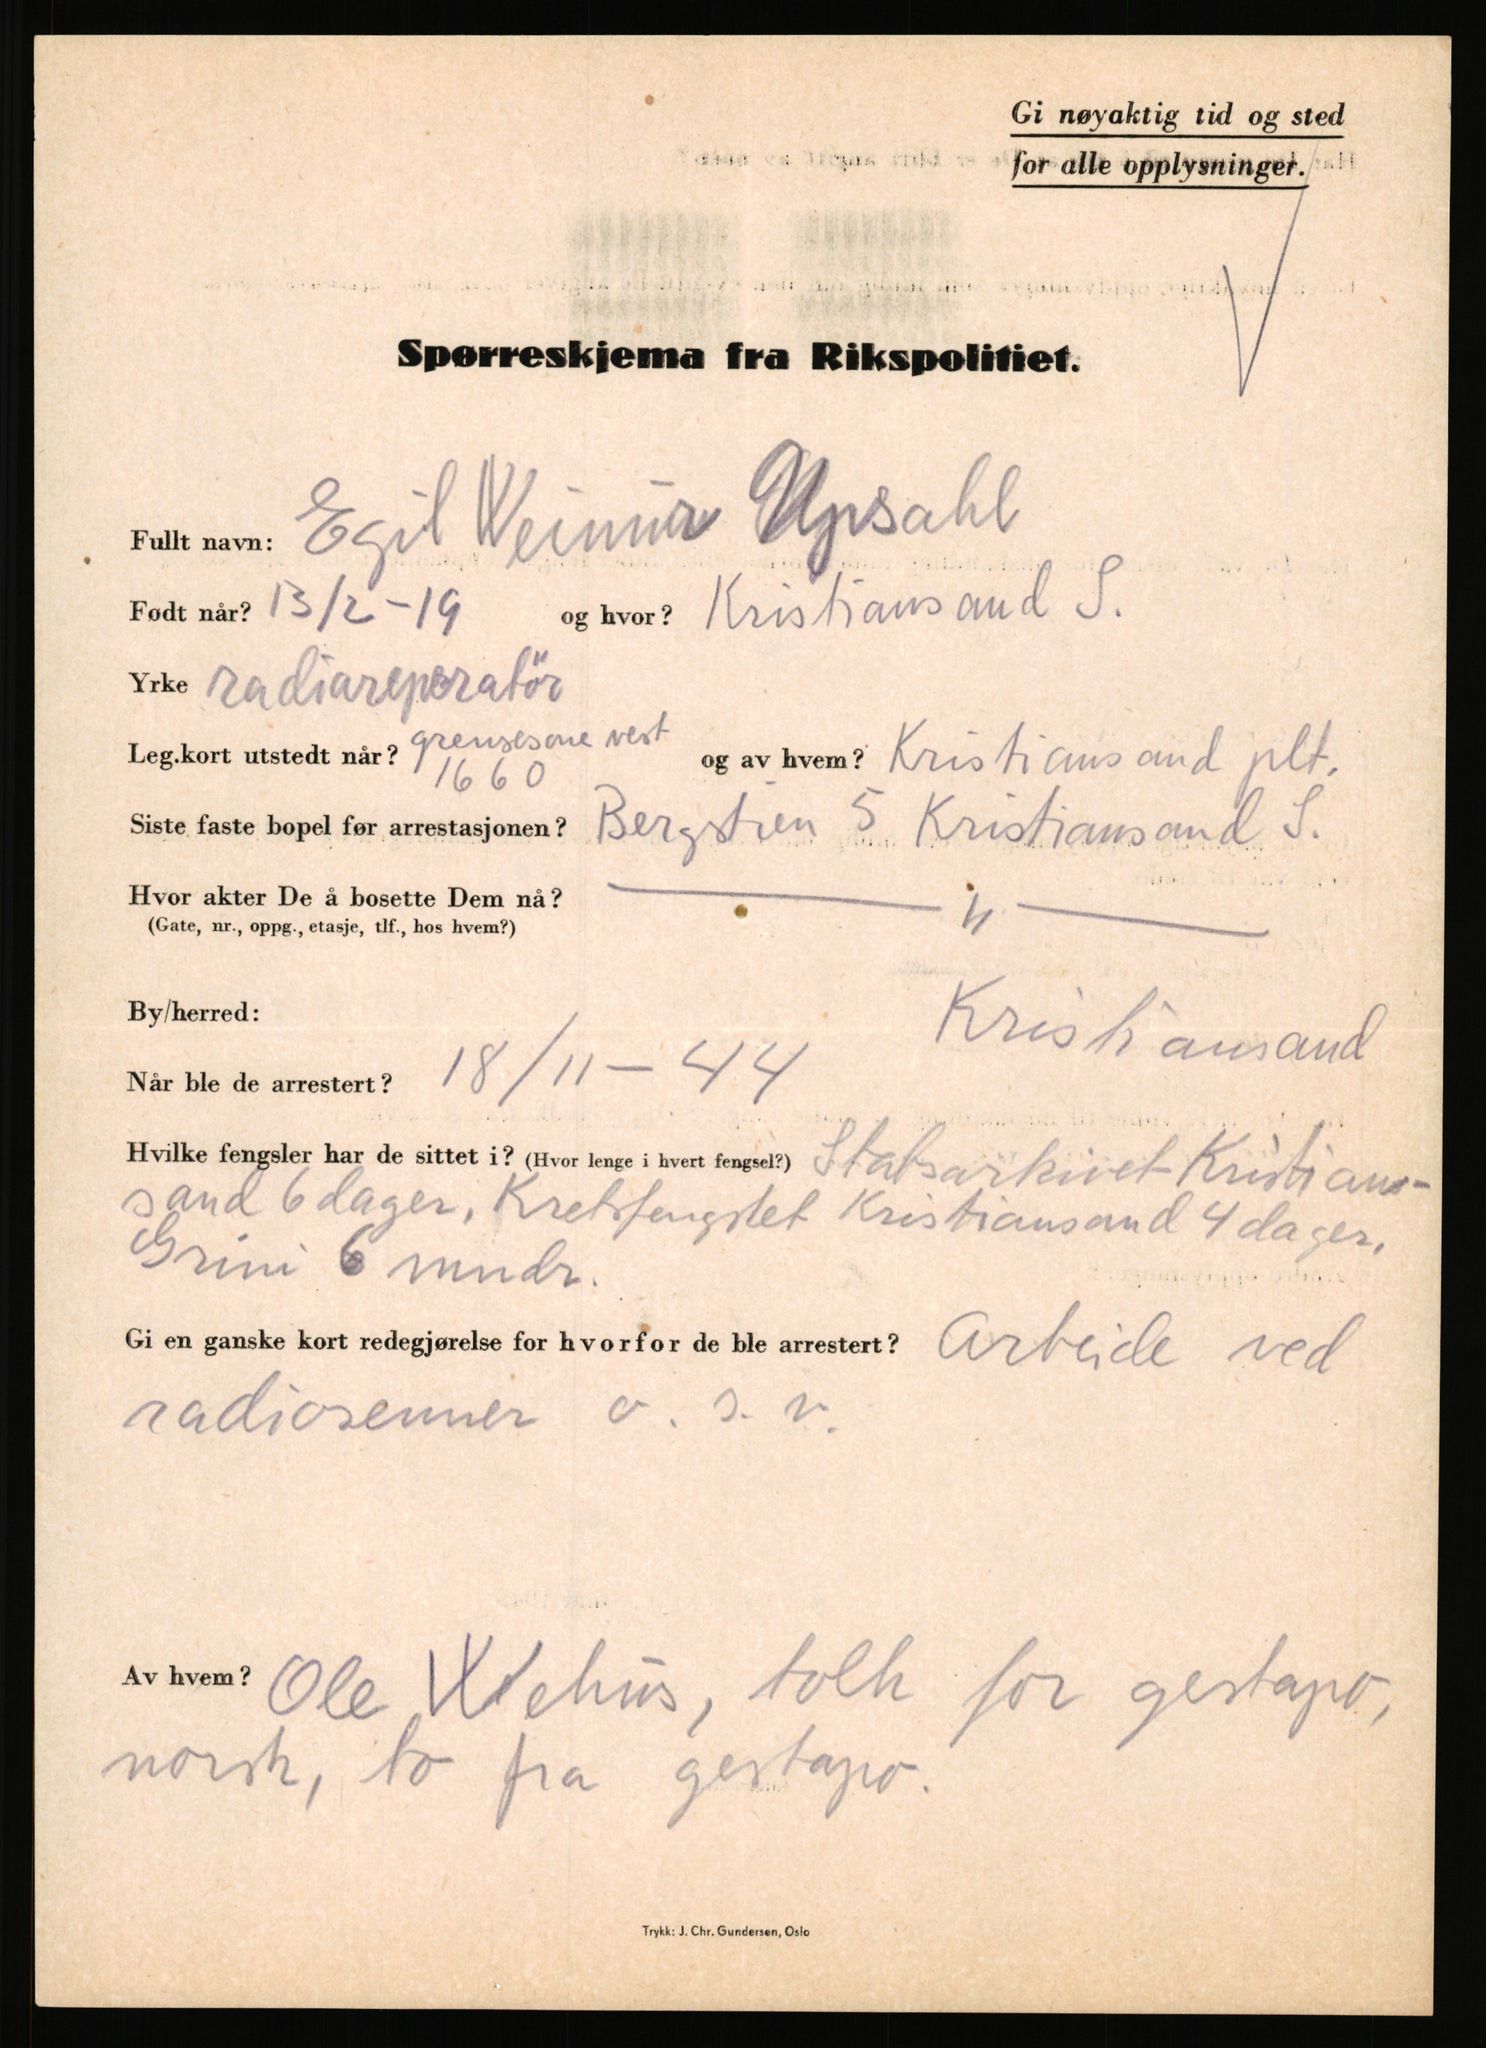 Gi nøyaktig tid og sted
for alle opplysninger.
Spørreskjema fra Rikspolitiet.
Fullt navn: Egil Weimur Upsahl
Født når? 13/2-19 og hvor? Kristiansand S.
Yrke radiareperatör
Leg.kort utstedt når? grensesone vest og av hvem? Kristiansand plt.
1660
Siste faste bopel før arrestasjonen? Bergstien 5 Kristiansand S.
Hvor akter De å bosette Dem nå? — " —
(Gate, nr., oppg., etasje, tlf., hos hvem?)
By/herred: Kristiansand
Når ble de arrestert? 18/11-44
Hvilke fengsler har de sittet i? (Hvor lenge i hvert fengsel?) Statsarkivet Kristian-
sand 6 dager, Kretsfengslet Kristiansand 4 dager,
Grini 6 mndr.
Gi en ganske kort redegjørelse for hvorfor de ble arrestert? Arbeide ved
radiosenner o. s. v.
Av hvem? Ole Wehus, tolk for gestapo,
norsk, to fra gestapo.
Trykk: J. Chr. Gundersen, Oslo